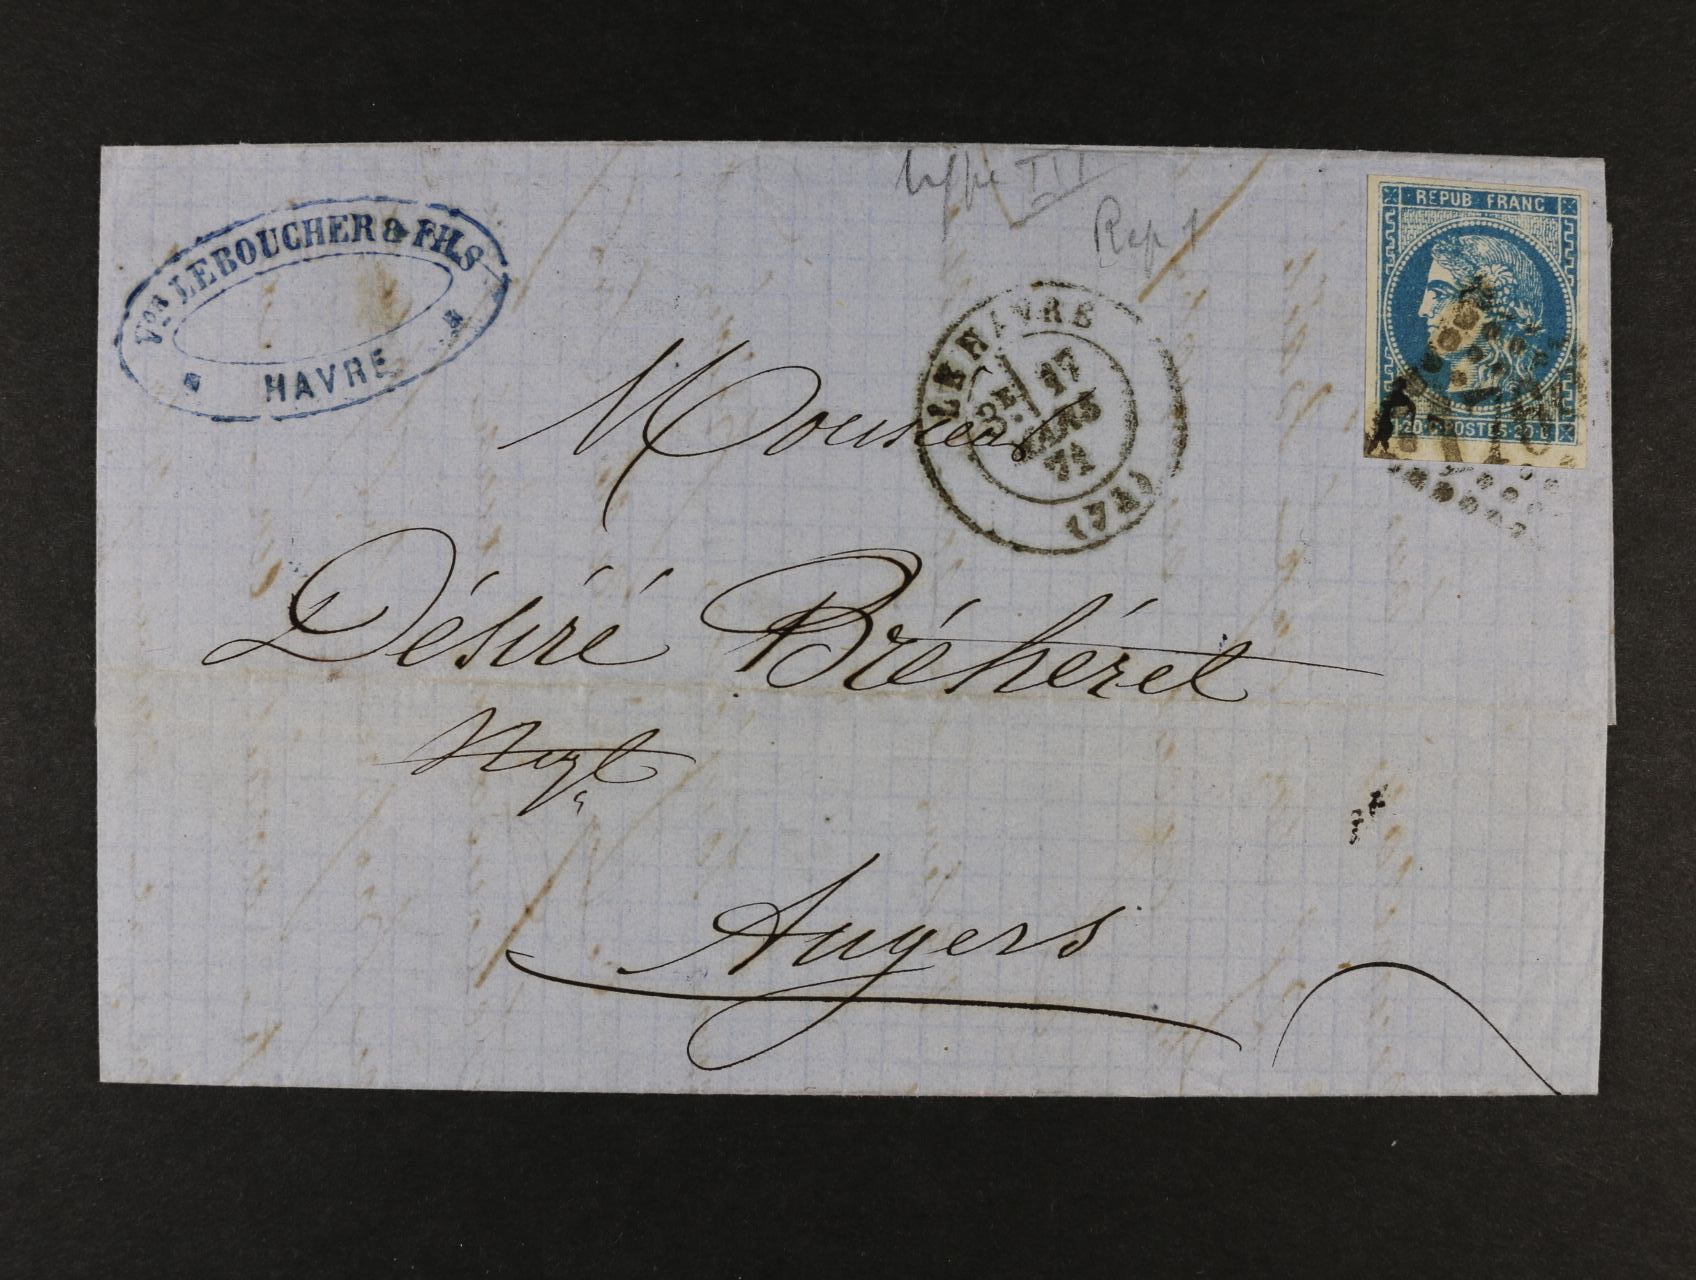 Vor LEBOUCHER & FILS
HAVRE
type III
Rep 1
REPUB FRANC
20 C POSTES 20 C
LE HAVRE
3E 17
MARS
71
(74)
Monsieur
Désiré Bréhéret
Négt
Angers